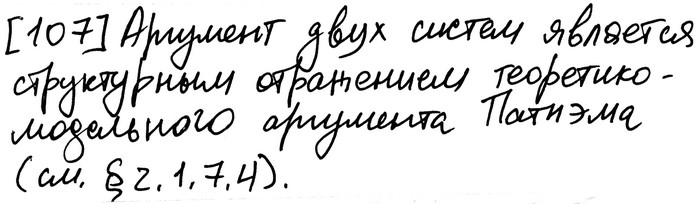 [107] Аргумент двух систем является
структурным отражением теоретико-
модельного аргумента Патнэма
(см. § 2.1.7.4).